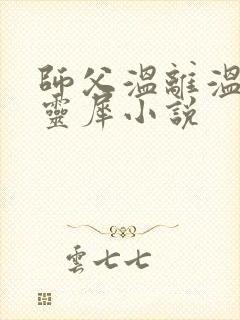 師父溫離溫
靈犀小說
雲七七